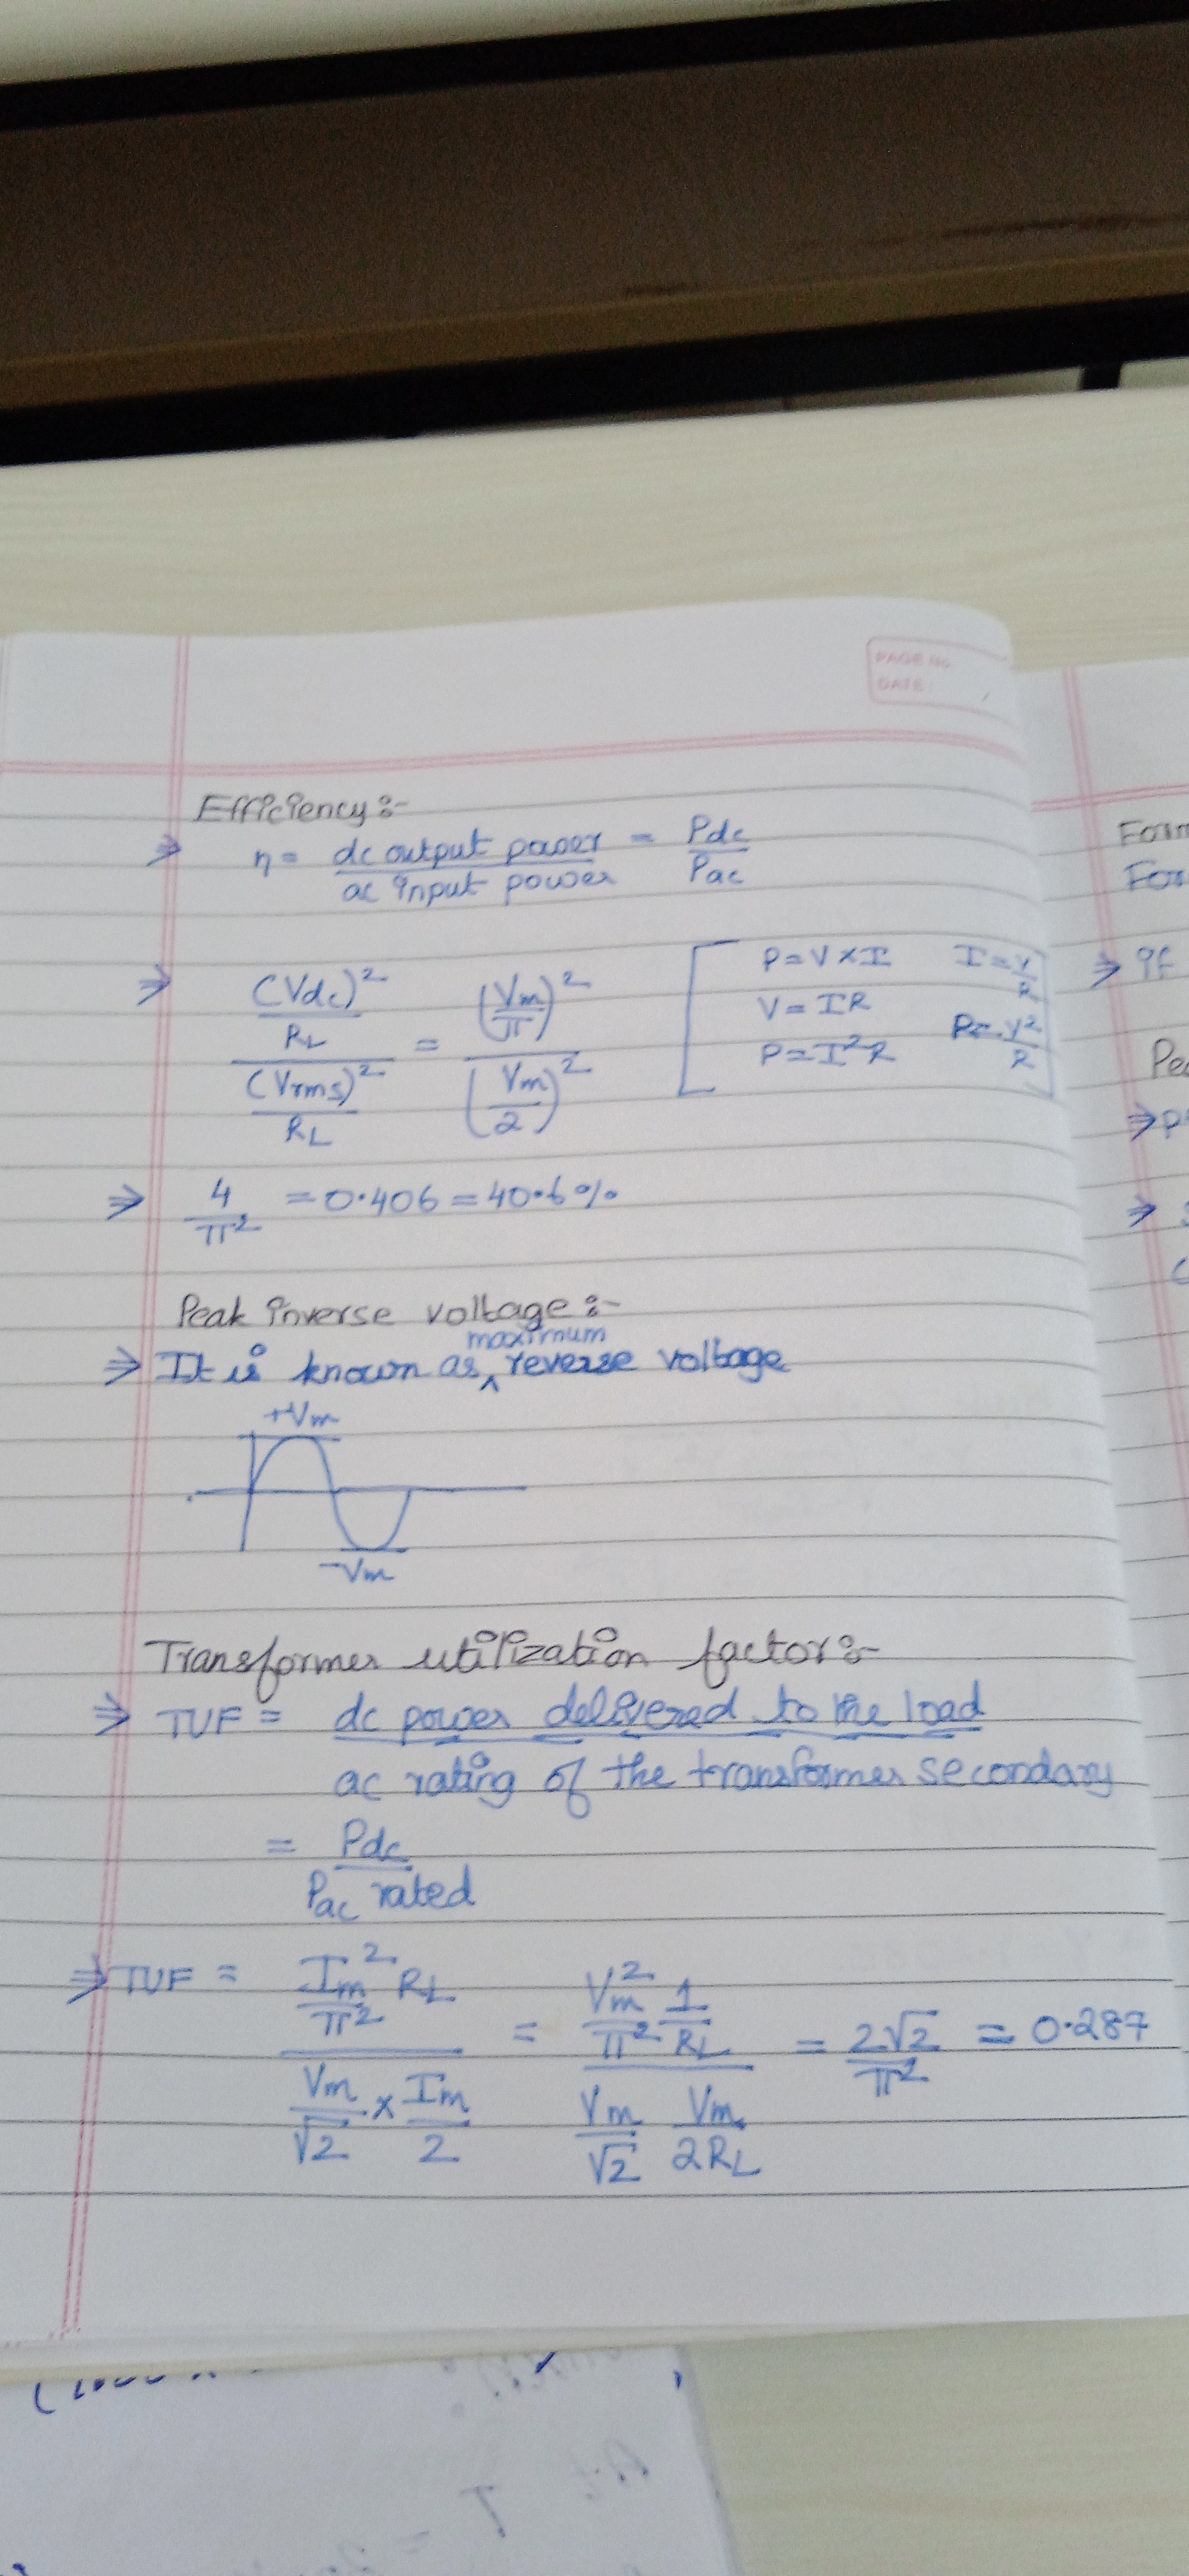 PAGE NO.
DATE:
Efficiency:-
⇒ η = dc output power / ac input power = Pdc / Pac
⇒ ((Vdc)² / RL) / ((Vrms)² / RL) = (Vm / π)² / (Vm / 2)²
[ P = V × I I = V / R
V = IR
P = I²R P = V² / R ]
⇒ 4 / π² = 0.406 = 40.6%
Peak inverse voltage:-
⇒ It is known as maximum reverse voltage
+Vm
-Vm
Transformer utilization factor:-
⇒ TUF = dc power delivered to the load
ac rating of the transformer secondary
= Pdc / Pac rated
⇒ TUF = (Im² / π² RL) / (Vm / √2 × Im / 2) = (Vm² / π² 1 / RL) / (Vm / √2 Vm / 2RL) = 2√2 / π² = 0.287
⇒ If